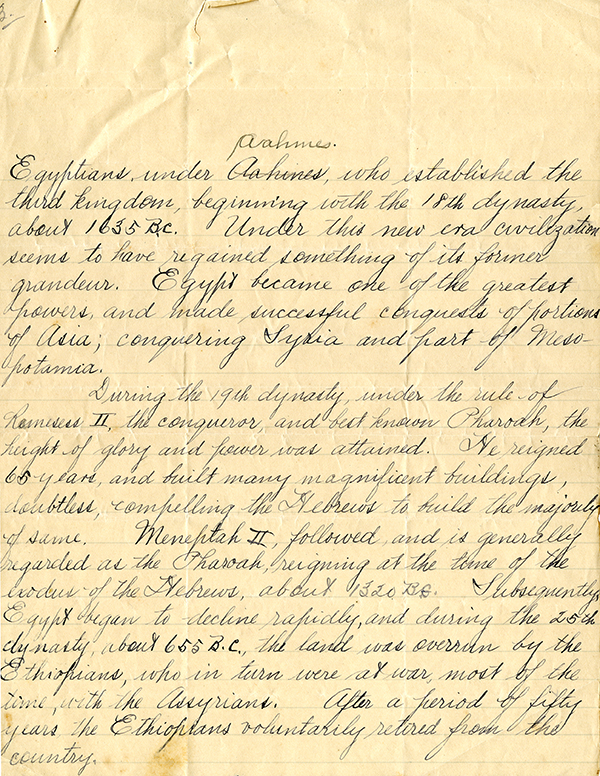 3.
Aahmes.
Egyptians, under Aahines, who established the
third kingdom, beginning with the 18th dynasty,
about 1635 B.C. Under this new era civilization
seems to have regained something of its former
grandeur. Egypt became one of the greatest
powers, and made successful conquests of portions
of Asia; conquering Syria and part of Meso-
potamia.
During the 19th dynasty, under the rule of
Ramesess II, the conqueror, and best known Pharoah, the
height of glory and power was attained. He reigned
65 years, and built many magnificent buildings,
doubtless, compelling the Hebrews to build the majority
of same. Meneptah II, followed, and is generally
regarded as the Pharoah, reigning at the time of the
exodus of the Hebrews, about 1320 B.C. Subsequently,
Egypt began to decline rapidly, and during the 25th
dynasty, about 655 B.C., the land was overrun by the
Ethiopians, who in turn were at war, most of the
time, with the Assyrians. After a period of fifty
years the Ethiopians voluntarily retired from the
country.